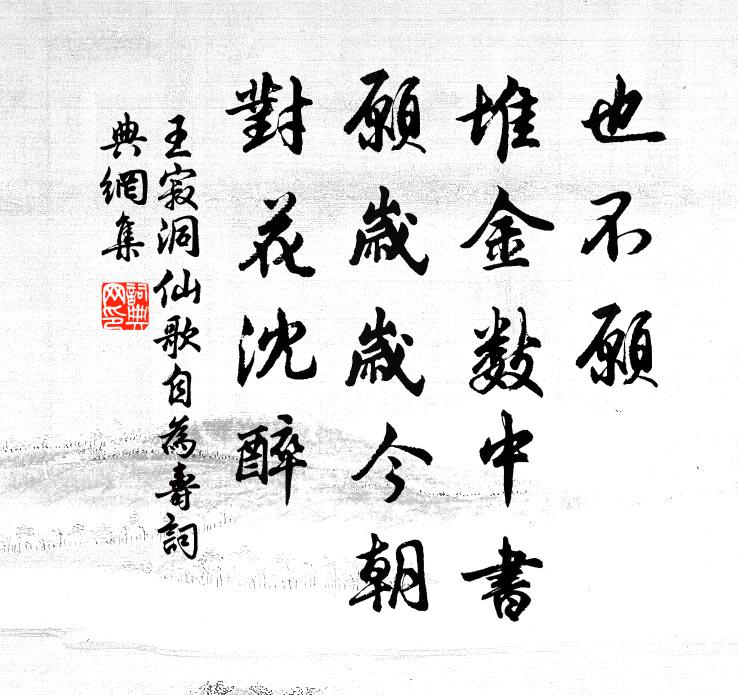 也不願
堆金數中書
願歲歲今朝
對花沈醉
王寂洞仙歌自為壽詞
典網集
詞典網印